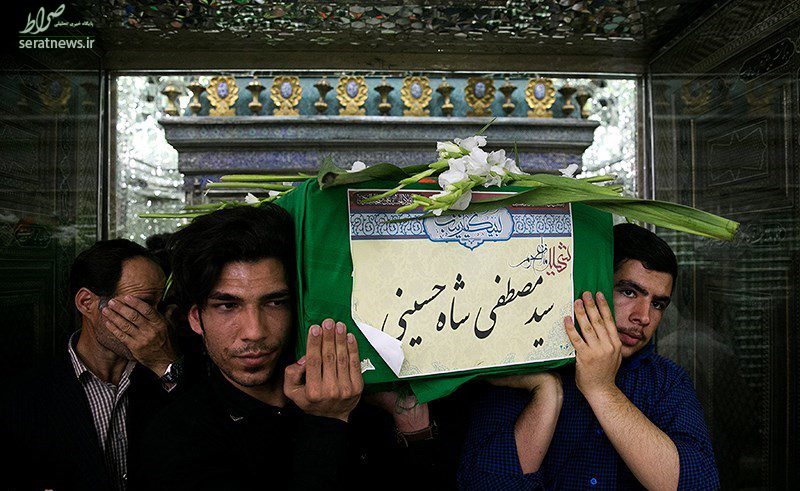 صراط
پایگاه خبری تحلیلی
seratnews.ir
لبیک یا زینب
شهید مدافع حرم
سید مصطفی شاه حسینی